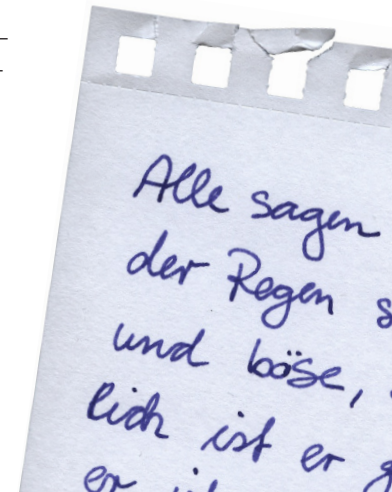 Alle sagen
der Regen
und böse,
lich ist er
er